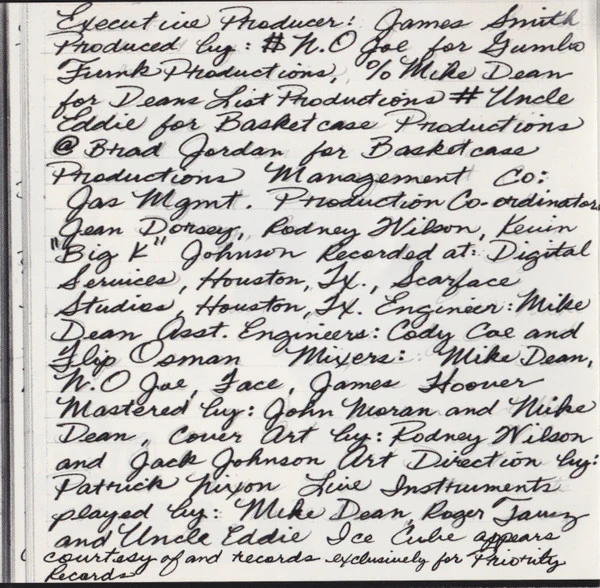 Executive Producer: James Smith
Produced by: # N.O Joe for Gumbo
Funk Productions, % Mike Dean
for Deans List Productions # Uncle
Eddie for Basketcase Productions
@ Brad Jordan for Basketcase
Productions Management Co:
Jas Mgmt. Production Co-ordinators
Jean Dorsey, Rodney Wilson, Kevin
"Big K" Johnson Recorded at: Digital
Services, Houston, Tx., Scarface
Studios, Houston, Tx. Engineer: Mike
Dean Asst. Engineers: Cody Coe and
Flip Osman Mixers: Mike Dean,
N.O Joe, Face, James Hoover
Mastered by: John Moran and Mike
Dean, Cover Art by: Rodney Wilson
and Jack Johnson Art Direction by:
Patrick Nixon Live Instruments
played by: Mike Dean, Roger Tausz
and Uncle Eddie Ice Cube appears
courtesy of and records exclusively for Priority
Records